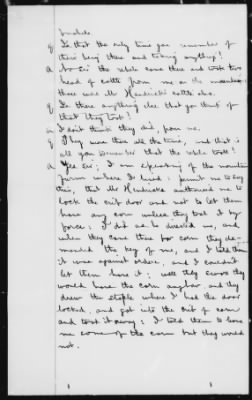 Q Is that the only time you remember of
their being there and taking anything?
A No Sir the rebels came there and took two
head of cattle from me on the mountain
those were Mr Hendricks cattle also.
Q Is there anything else that you think of
that they took?
A I don't think they did, from me.
Q They were there all the time, and that is
all you remember that the rebels took?
A Yes Sir; I was speaking of the mountain
farm where I lived: permit me to say
this, that Mr Hendricks authorized me to
lock the crib door and not to let them
have any corn unless they took it by
force; I did as he directed me, and
when they came there for corn they de-
manded the key of me, and I told them
it was against orders, and I couldn't
let them have it; well they swore they
would have the corn anyhow and they
drew the staple where I had the door
locked, and got into the crib of corn
and took it away; I told them to leave
me some of the corn but they would
not.